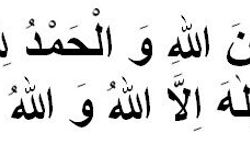 نَ اللهِ وَ الْحَمْدُ لِ
لٰهَ اِلَّا اللهُ وَ اللهُ